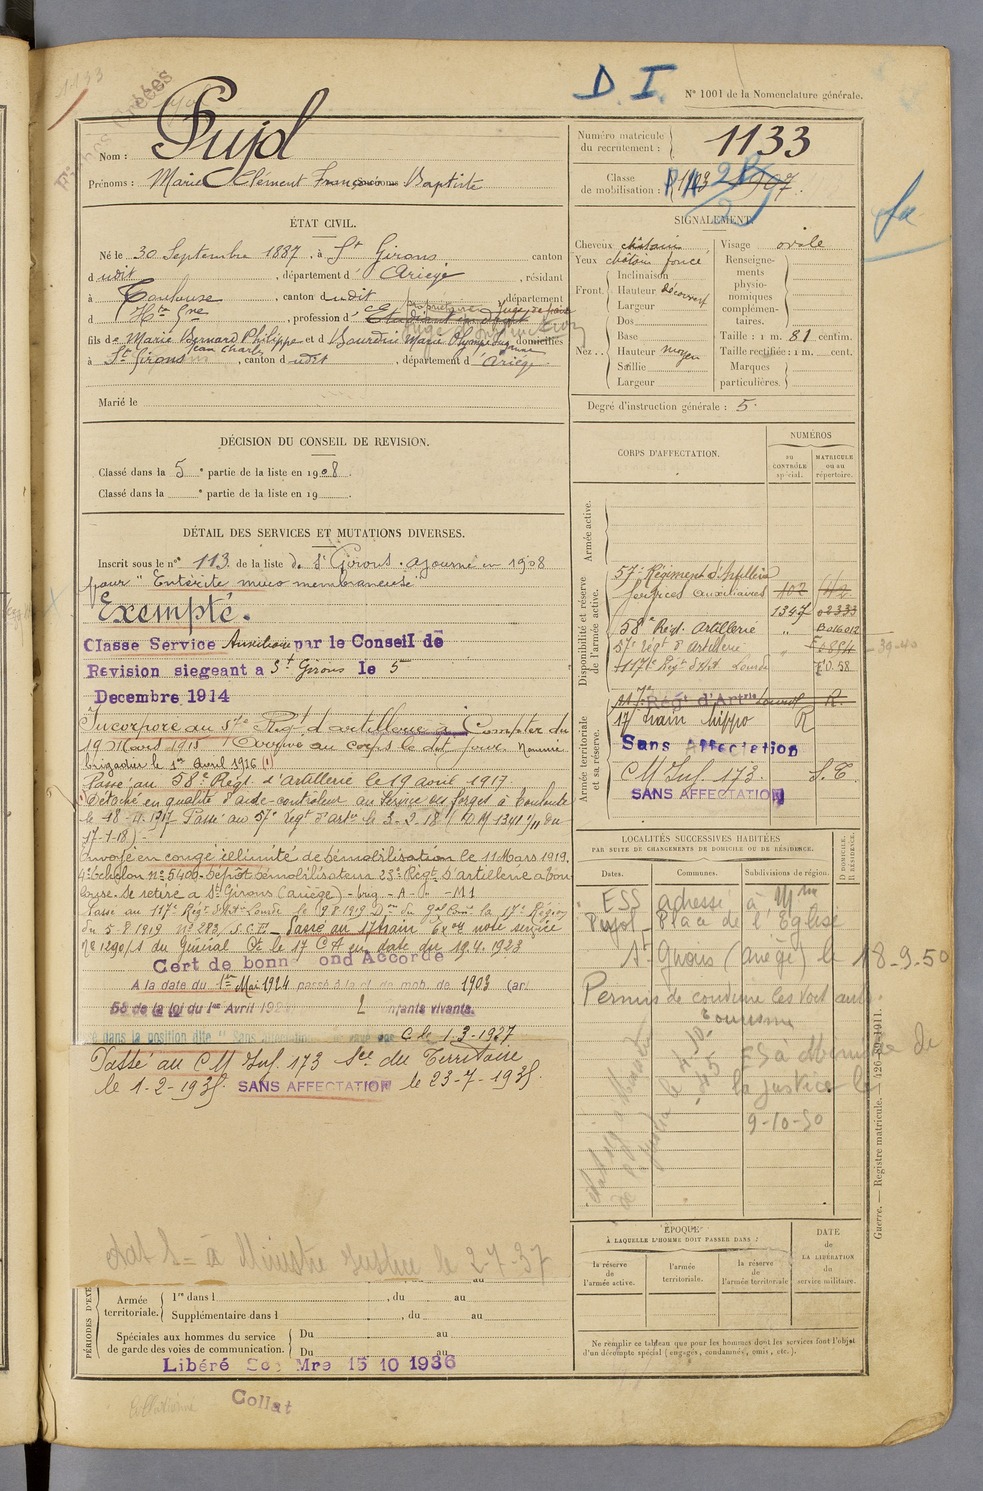 1133
D. I.
N° 1001 de la Nomenclature générale.
Nom : Pujol
Prénoms : Marie Clément François Baptiste
Numéro matricule du recrutement : 1133
Classe de mobilisation : 1903 1907
ÉTAT CIVIL.
Né le 30 Septembre 1887, à St Girons, canton
dudit, département d'Ariège, résidant
à Toulouse, canton dudit, département
d Hte Gne, profession d' Etudiant en droit
propriétaire Juge de paix
Juge d'instruction
fils de Marie Bernard Philippe et d Bourdin Marie Olympe Suzanne domiciliés
Jean Charles
à St Girons, canton dudit, département d'Ariège.
Marié le
SIGNALEMENT.
Cheveux châtain
Yeux châtain foncé
Front. Inclinaison
Hauteur découvert
Largeur
Nez. Dos
Base
Hauteur moyen
Saillie
Largeur
Visage ovale
Renseignements physionomiques complémentaires.
Taille : 1 m. 81 centim.
Taille rectifiée : 1 m. cent.
Marques particulières.
Degré d'instruction générale : 5.
DÉCISION DU CONSEIL DE REVISION.
Classé dans la 5e partie de la liste en 1908.
Classé dans la e partie de la liste en 19 .
DÉTAIL DES SERVICES ET MUTATIONS DIVERSES.
Inscrit sous le n° 113 de la liste de St Girons. ajourné en 1908
pour "Entérite muco membraneuse"
Exempté.
Classe Service Auxiliaire par le Conseil de
Revision siegeant a St Girons le 5
Decembre 1914
Incorporé au 57e Régt d'artillerie à Compter du
19 Mars 1915 Arrivé au corps le dit jour. Nommé
brigadier le 1er Avril 1916 (1)
Passé au 58e Régt d'artillerie le 19 avril 1917.
(1) Détaché en qualité d'aide-controleur au Service des forges à Toulouse
le 18-11-1917 Passé au 57e régt d'artie le 3-2-18 (D M 1341 1/11 du
17-1-18)
Envoyé en congé illimité de démobilisation le 11 Mars 1919.
4e échelon n° 5406. Dépôt démobilisateur 23e Régt d'artillerie à Toulouse.
Se retire à St Girons (ariège)
Passé au 117e Régt d'Artie Lourde le 9-8-1919 Don du Gal Comt la 17e Région
du 5-8-1919 n° 283/S.C.E. Passé au 17 train Exon note service
n° 1290/1 du Général Ct le 17 C A en date du 19.4.1923
Cert de bonn ond Accordé
A la date du 1er Mai 1924 passé à la cl de mob. de 1903 (art
58 de la loi du 1er Avril 192 2 nfants vivants.
dans la position dite "Sans Affectation" C. le 1.3.1927.
Passé au C M Inf. 173 Sce du Territoire
le 1-2-1935. SANS AFFECTATION le 23-7-1935.
à Ministre Justice le 2-7-37
CORPS D'AFFECTATION.
NUMÉROS
au CONTRÔLE spécial.
MATRICULE ou au répertoire.
Armée active.
Disponibilité et réserve de l'armée active.
57e Régiment d'Artillerie
Services auxiliaires 402
1347 02333
58e Régt. Artillerie " B016012
57e Régt d'Artillerie F0854
117e Régt d'Art Lourde
39-40
Armée territoriale et sa réserve.
117e Régt d'Artrie Lourde R.
17 train hippo R
Sans Affectation
C M Inf. 173. S.T.
SANS AFFECTATION
LOCALITÉS SUCCESSIVES HABITÉES
PAR SUITE DE CHANGEMENTS DE DOMICILE OU DE RÉSIDENCE.
Dates.
Communes.
Subdivisions de région.
D DOMICILE. R RÉSIDENCE.
ESS adressé à Mme
Pujol Place de l'Eglise
St Girons (Ariège) le 18-9-50
Permis de conduire les voit auto.
tourisme
ES à Ministre de
la Justice le
9-10-50
ÉPOQUE
À LAQUELLE L'HOMME DOIT PASSER DANS :
la réserve de l'armée active.
l'armée territoriale.
la réserve de l'armée territoriale
DATE de LA LIBÉRATION du service militaire.
Ne remplir ce tableau que pour les hommes dont les services font l'objet
d'un décompte spécial (engagés, condamnés, omis, etc.).
Guerre. — Registre matricule. — 126-89-1911.
PÉRIODES D'EXE
au
Armée territoriale. 1re dans l , du au
Supplémentaire dans l , du au
Spéciales aux hommes du service de garde des voies de communication. Du au
Du au
Libéré Mre 15 10 1936
Collationné
Collat